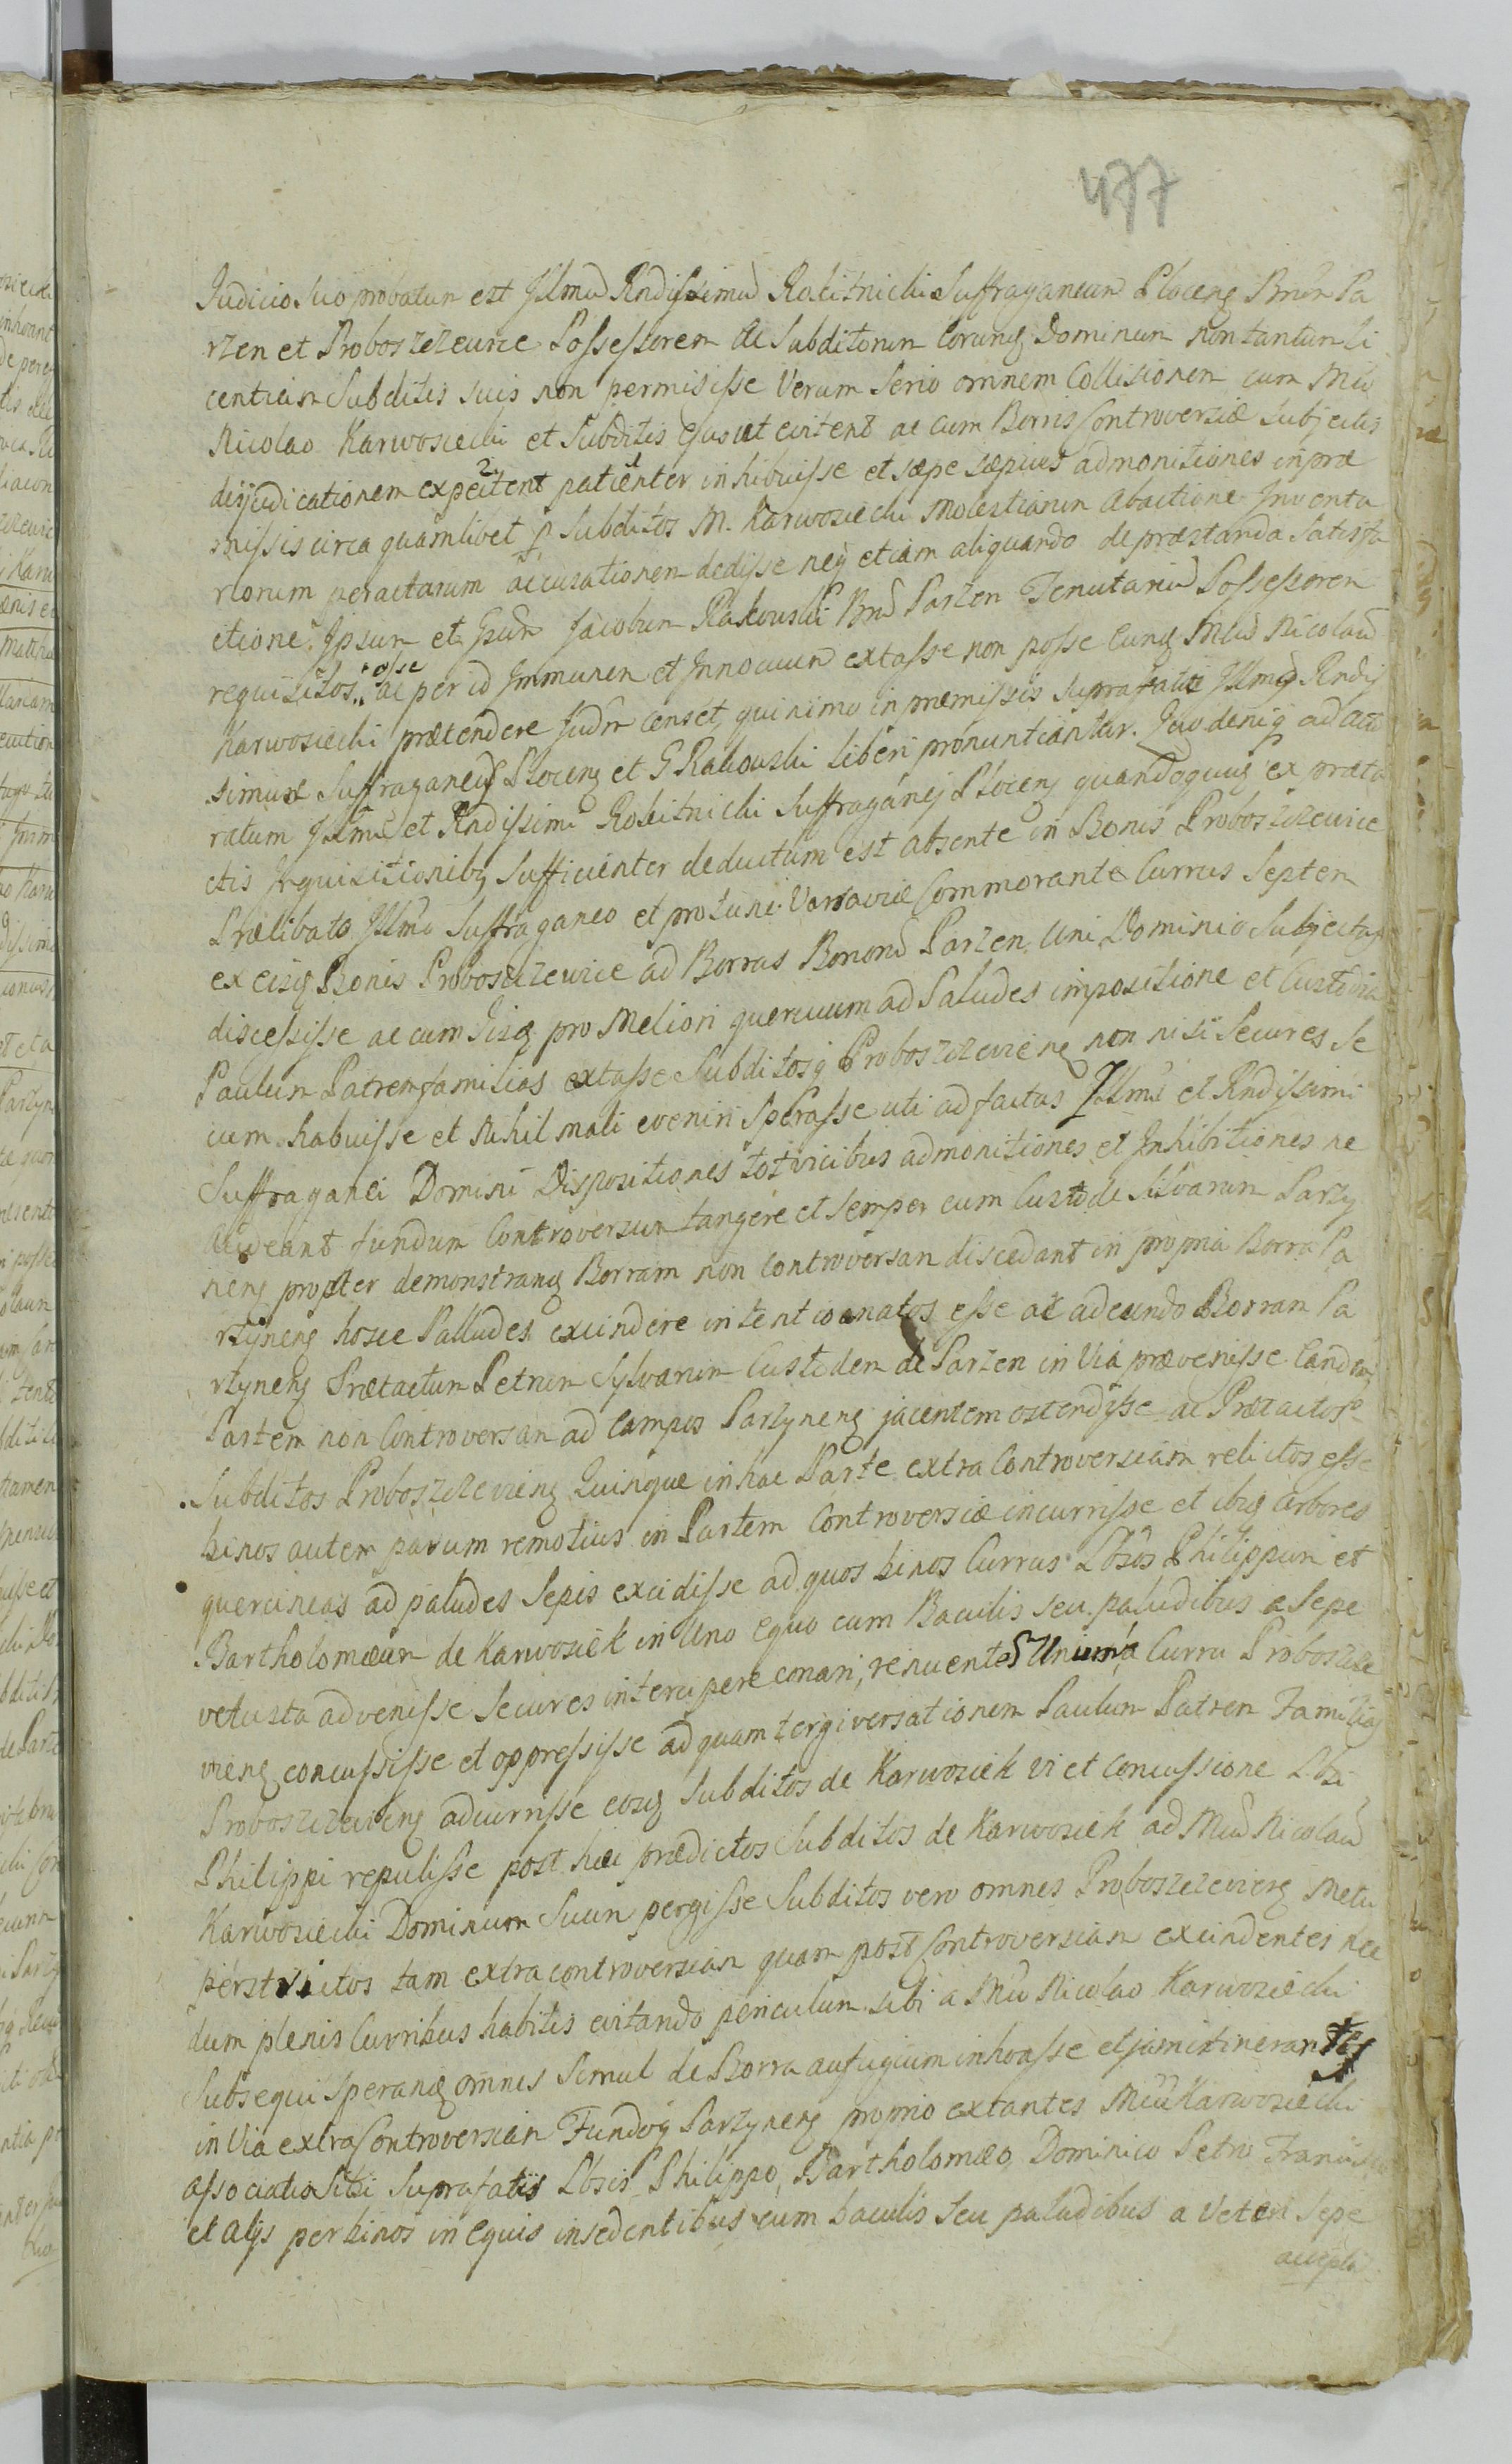 477
Judicio suo probatum est Illmũ Rndissimũ Rokitnicki Suffraganeum Plocens Bnrum Pa
rzen et Proboszczewice Possessorem ac Subditorum eorumq Dominum non tantum li
centiam Subditis suis non permisisse Verum Serio omnem Collisionem cum Mco
Nicolao Karwosiecki et Subditis Ejus ut evitent ac cum Borris Controversiæ subjectis
dijudicationem expectent patienter inhibuisse et sæpe sæpius admonitiones in præ
missis circa quamlibet p Subditos M. Karwosiecki Molestiarum Abactione Inventa
riorum peractarum accurationem dedisse neq etiam aliquando de præstanda Satisfa
ctione Ipsum et Gsum Jacobum Rakowski Bnr Parzen Tenutariũ Possessorem
requisitos esse ac per id Immunem et Innocuum extasse non posse eumq Mcũ Nicolaũ
Karwosiecki prætendere Judm censet, quinimo in præmissis suprafatus Illmus Rndis
simus Suffraganeus Plocens et G Rakowski liberi pronuntiantur. Quo deniq ad actu
ratum Illmi et Rndissimi Rokitnicki Suffraganej Plocens quandoquidem ex præta
ctis Inquisitionibus Sufficienter deductum est absente in Bonis Proboszczewice
Prælibato Illmo Suffraganeo et pro tunc Varsaviæ Commorante Currus Septem
ex eisq Bonis Proboszczewice ad Borras Bonorũ Parzen Uni Dominio Subjectas
discessisse ac cum Eisq pro Meliori quercuum ad Paludes impositione et Custodia
Paulum Patremfamilias extasse Subditosq Proboszczewicens non nisi Secures Se
cum habuisse et Nihil mali eveniri Sperasse uti ad factas Illmi et Rndissimi
Suffraganei Domini Dispositiones tot vicibus admonitiones et Inhibitiones ne
audeant fundum Controversum tangere et semper cum Custode Silvarum Parzy
nens propter demonstrans Borram non controversam discedant in propria Borra Pa
rzynens hosce Palludes excindere intentionatos esse ac adeundo Borram Pa
rzynens Prætactum Petrum Sylvarum Custodem de Parzen in Via prævenisse Eandem
Partem non Controversam ad Campos Parzynens jacentem ostendisse ac Prætactos
Subditos Proboszczewicens Quinque in hac Parte extra Controversiam relictos esse
binos autem parum remotius in Partem Controversiæ incurrisse et ibiq arbores
quercineas ad paludes Sepis excidisse ad quos binos Currus Lbsos Philippum et
Bartholomæum de Karwosiek in Uno Equo cum Baculis seu paludibus a Sepe
vetusta advenisse Secures intercipere conari, renuentes Unum e Curru Proboszcze
wicens concussisse et oppressisse ad quam tergiversationem Paulum Patrem Familias
Proboszczewicens adcurrisse eosq Subditos de Karwosiek vi et Concussione Lbsi
Philippi repulisse post hæc prædictos Subditos de Karwosiek ad Mcũ Nicolaũ
Karwosiecki Dominum Suum pergisse Subditos vero omnes Proboszczewicens Metu
perstrictos tam extra controversiam quam post Controversiam excindentes nec
dum plenis Curribus habitis evitando periculum sibi a Mco Nicolao Karwosiecki
Subsequi Sperans omnes Simul de Borra aufugium inhoasse et jam itinerantes
in Via extra Controversiam Fundoq Parzynens proprio extantes Mcũ Karwosiecki
associatis Sibi Suprafatis Lbsis Philippo, Bartholomæo, Dominico Petro Francisco
et alijs per binos in Equis insedentibus cum baculis Seu paludibus a Veteri Sepe
accepti